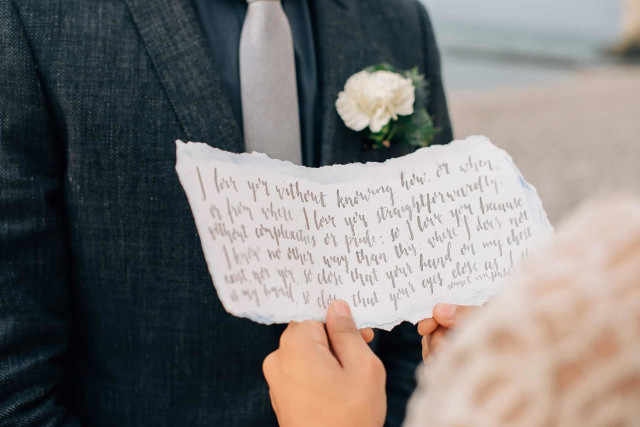 I love you without knowing how, or when,
or from where. I love you straightforwardly,
without complexities or pride; so I love you because
I know no other way than this: where I does not
exist, nor you, so close that your hand on my chest
is my hand, so close that your eyes close as I